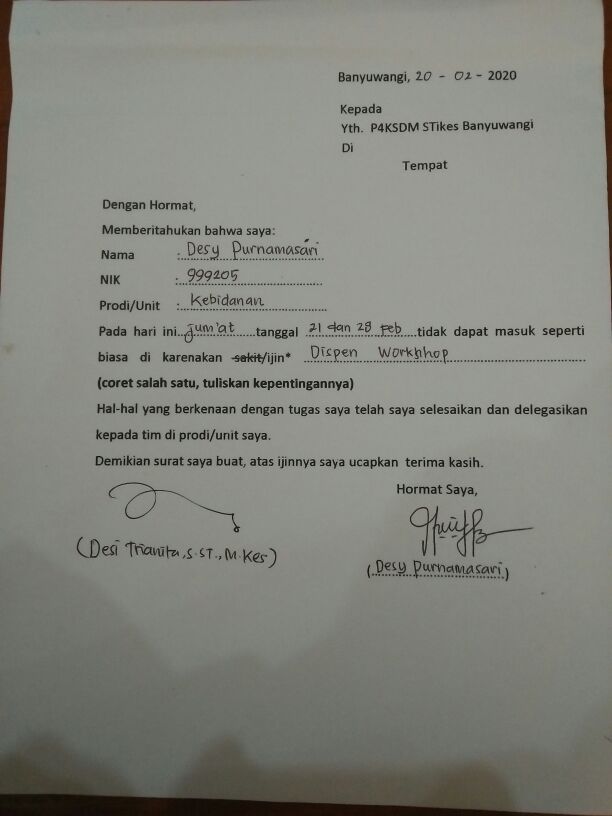 Banyuwangi, 20 - 02 - 2020
Kepada
Yth. P4KSDM STikes Banyuwangi
Di
Tempat
Dengan Hormat,
Memberitahukan bahwa saya:
Nama : Desy Purnamasari
NIK : 999205
Prodi/Unit : Kebidanan
Pada hari ini...jum'at......tanggal 21 dan 28 Feb ...tidak dapat masuk seperti
biasa di karenakan sakit/ijin* Dispen Workhhop
(coret salah satu, tuliskan kepentingannya)
Hal-hal yang berkenaan dengan tugas saya telah saya selesaikan dan delegasikan
kepada tim di prodi/unit saya.
Demikian surat saya buat, atas ijinnya saya ucapkan terima kasih.
Hormat Saya,
(Desi Trianita, S.ST., M.Kes)
(Desy Purnamasari)